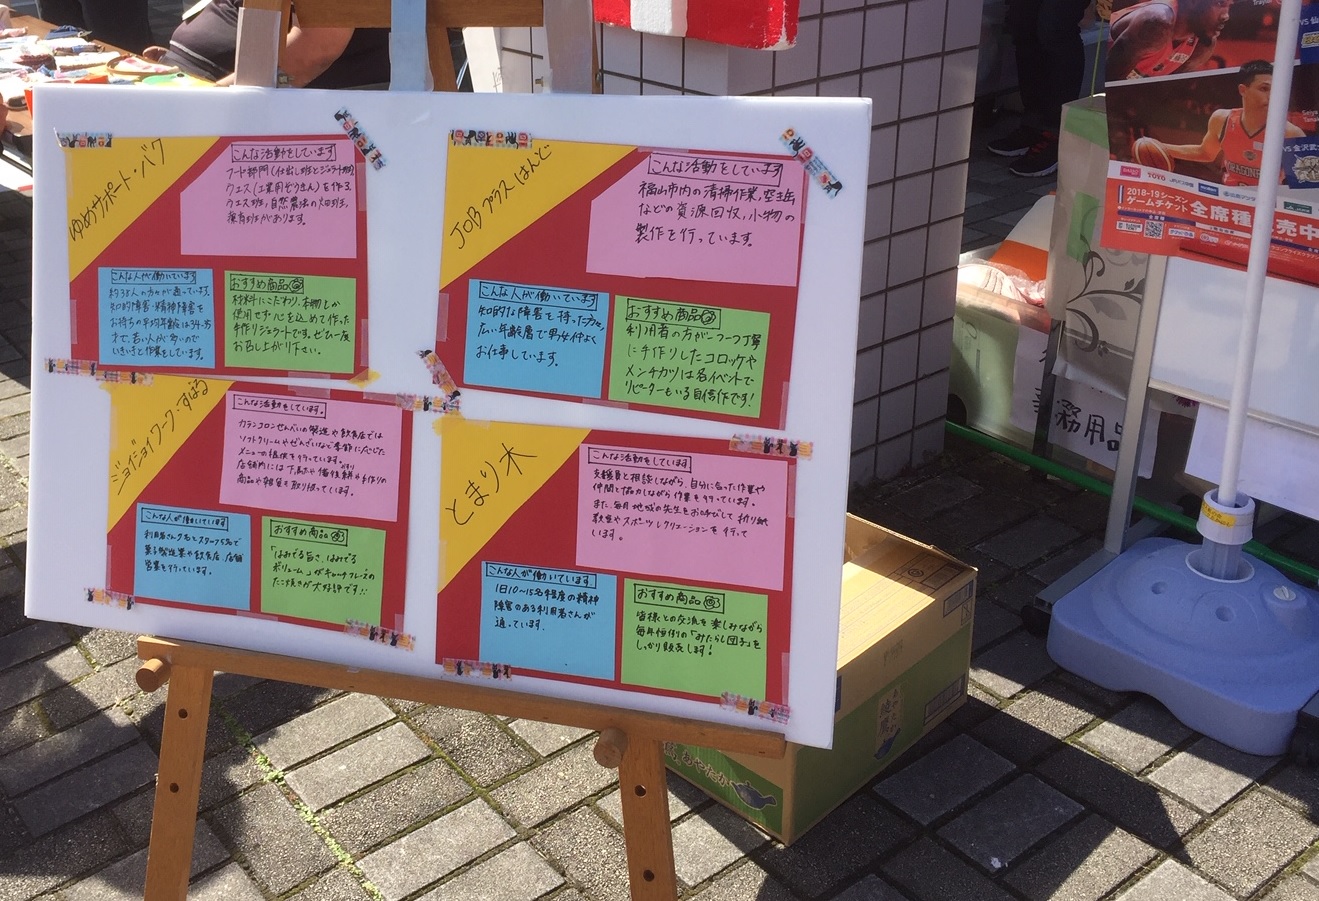 ゆめサポート・バク
こんな活動をしています
フード部門(仕出し班とジェラート班)
ウエス(工業用ぞうきん)を作る
ウエス班、自然農法の畑班、
があります。
こんな人が働いています
約35人の方々が通っています。
知的障害・精神障害を
お持ちの平均年齢は34.
才で、若い人が多いので
いきいきと作業をしています。
おすすめ商品
材料にこだわり、本物しか
使用せず心を込めて作った
手作りジェラートです。ぜひ一度
お召し上がり下さい。
JOBプラスはんど
こんな活動をしています
福山市内の清掃作業、空き缶
などの資源回収、小物の
製作を行っています。
こんな人が働いています
知的な障害を持った方が、
広い年齢層で男女仲よく
お仕事しています。
おすすめ商品
利用者の方が一つ一つ丁寧
に手作りしたコロッケや
メンチカツは各イベントで
リピーターもいる自信作です!
ジョイジョイワーク・すばる
こんな活動をしています。
カランコロンせんべいの製造や飲食店では
ソフトクリームやぜんざいなど季節に応じた
メニューの提供を行っています。
店舗内には下駄や備後絣や手作りの
商品や雑貨も取り扱っています。
こんな人が働いています
利用者さん名とスタッフ5名で
菓子製造業や飲食店、店舗
営業を行っています。
おすすめ商品
「はみでる旨さ、はみでる
ボリューム」がキャッチフレーズの
たこ焼きが大好評です!!
とまり木
こんな活動をしています
支援員と相談しながら、自分に合った作業や
仲間と協力しながら作業を行っています。
また、毎月地域の先生をお呼びして折り紙
教室やスポーツレクリエーションを行って
います。
こんな人が働いています
1日10〜15名程度の精神
障害のある利用者さんが
通っています。
おすすめ商品
皆様との交流を楽しみながら
毎年恒例の「みたらし団子」を
しっかり販売します!
2018-19シーズン
ゲームチケット
全席種
売中
務用品
あやたか